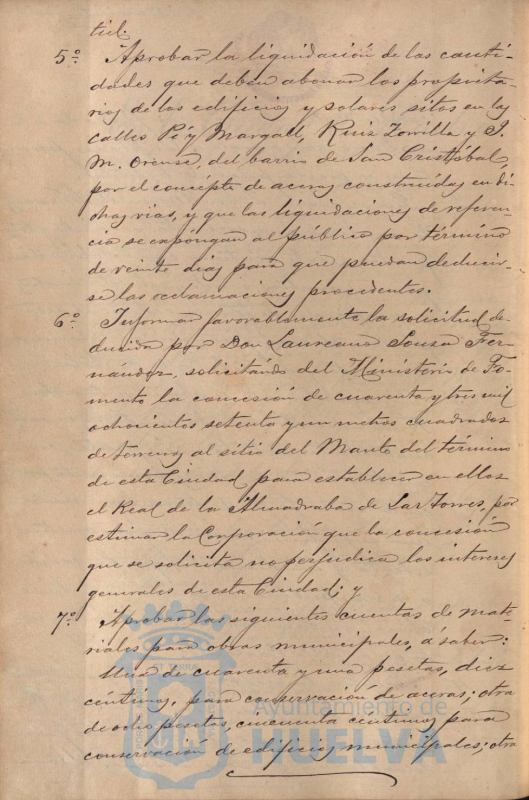 til.
5º Aprobar la liquidación de las canti-
dades que deben abonar los propieta-
rios de los edificios y solares sitos en las
calles Pí y Margall, Ruiz Zorrilla y J.
M. Orense, del barrio de San Cristóbal,
por el concepto de aceras construídas en di-
chas vías, y que las liquidaciones de referen-
cia se expongan al público por término
de veinte días para que puedan deducir-
se las reclamaciones procedentes.
6º Informar favorablemente la solicitud de-
ducida por Don Laureano Sousa Fer-
nández, solicitando del Ministerio de Fo-
mento la concesión de cuarenta y tres mil
ochocientos setenta y un metros cuadrados
de terreno, al sitio del Manto del término
de esta Ciudad para establecer en ellos
el Real de la Almadraba de Las Torres, por
estimar la Corporación que la concesión
que se solicita no perjudica los intereses
generales de esta Ciudad; y
7º Aprobar las siguientes cuentas de mate-
riales para obras municipales, á saber:
Una de cuarenta y una pesetas, diez
céntimos, para conservación de aceras; otra
de ocho pesetas, cincuenta céntimos para
conservación de edificios municipales; otra
Ayuntamiento de
HUELVA